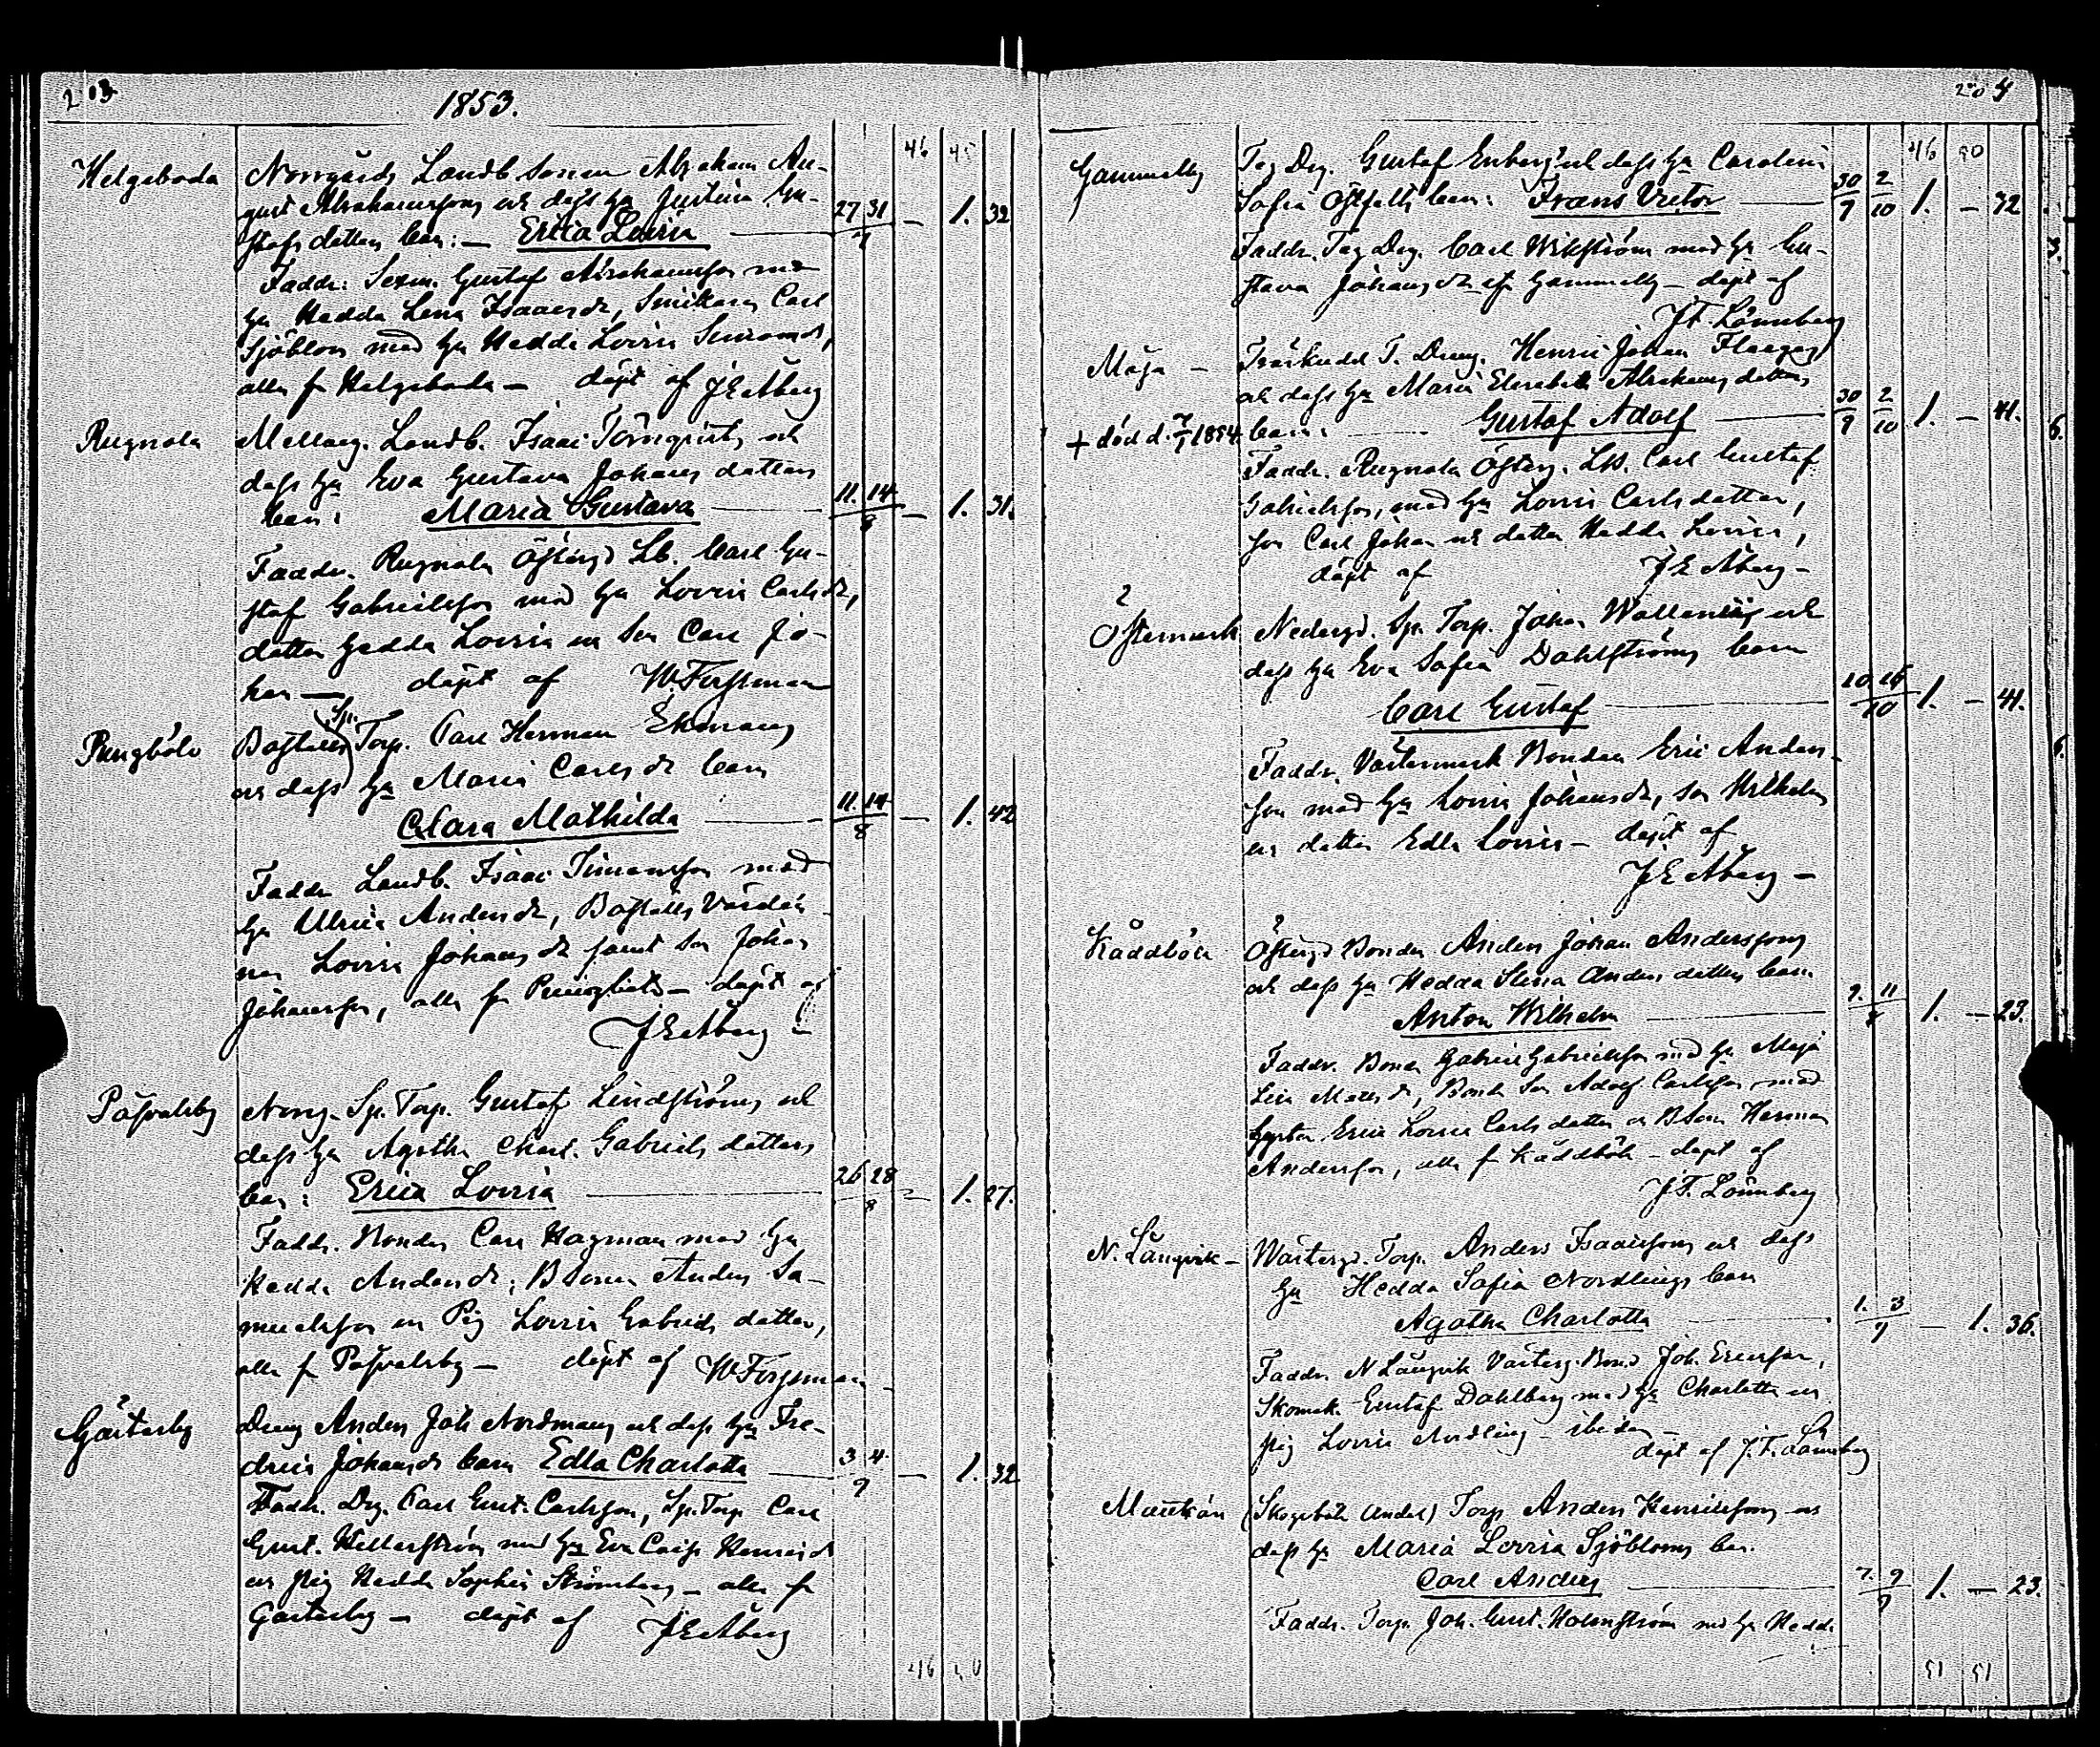 203
1853.
46 45
Helgeboda
Norrgårds Landb. sonen Abraham Au-
gust Abrahamssons och dess hu Justina Gu-
stafs dotters barn: — Erica Lovisa 27 31 7 — 1. 32
Faddr: Sexm. Gustaf Abrahamsson med
hu Hedda Lena Isaacsdr, Smeden Carl
Sjöblom med hu Hedda Lovisa Simonsdr,
alla fr Helgeboda — döpt af J E Åberg
Rugnola
Mellang. Landb. Isaac Törnqvists och
dess hu Eva Gustava Johans dotters
barn: Maria Gustava 11. 14 8 — 1. 31.
Faddr. Rugnola Östergd Lb. Carl Gu-
staf Gabrielsson med hu Lovisa Carlsdr,
dotter Hedda Lovisa och son Carl Jo-
han — döpt af W. Forssman
Pungböle
Boställs Sp. Torp. Carl Herman Ekmans
och dess hu Maria Carlsdr barn
Clara Mathilda 11. 14 8 — 1. 42
Faddr Landb. Isaac Simonsson med
hu Ulrica Andersdr, Boställs Värdin-
nan Lovisa Johansdr samt son Johan
Johansson, alla fr Pungböle — döpt af
J E Åberg —
Påvalsby
Norrg. Sp. Torp. Gustaf Lindströms och
dess hu Agatha Charl. Gabriels dotters
barn: Erica Lovisa 26 28 8 — 1. 27.
Faddr. Bonden Carl Hagman med hu
Hedda Andersdr; B sonen Anders Sa-
muelsson och Pig Lovisa Gabriels dotter,
alla fr Påvalsby — döpt af W Forssman
Gästerby
Dreng Anders Joh Nordmans och dess hu Fre-
drica Johansdr barn Edla Charlotta 3 4. 9 — 1. 32
Faddr. Drg. Carl Gust. Carlsson, Sp. Torp Carl
Gust. Hellerström med hu Eva Caisa Henricsdr
och pig Hedda Sophia Strömberg — alla fr
Gästerby — döpt af J E Åberg
46 50
204
46 50
Gammelby
Teg Drg. Gustaf Enbergs och dess hu Carolina
Sofia Östfelts barn: Frans Victor 30 9 2 10 1. — 32
Faddr. Teg Drg. Carl Wikström med hu Gu-
stava Johansdr fr Gammelby — döpt af
J F. Lönnberg
Måsa —
T. Dreng. Henric Johan Flaggas
och dess hu Maria Elisabeth Abrahams dotters
+ död d. 7 1854. barn: Gustaf Adolf 30 9 2 10 1. — 41.
Faddr. Rugnola Österg. Lb. Carl Gustaf
Gabrielsson, med hu Lovisa Carls dotter,
son Carl Johan och dotter Hedda Lovisa,
döpt af J E Åberg —
Östermark
Nedergd. Sp. Torp. Johan Wallenius och
dess hu Eva Sofia Dahlströms barn
Carl Gustaf 10 16 10 1. — 41.
Faddr. Västermark Bonden Eric Anders-
son med hu Lovisa Johansdr, son Wilhelm
och dotter Edla Lovisa — döpt af
J E Åberg —
Kåddböle
Östergd Bonden Anders Johan Anderssons
och dess hu Hedda Stina Anders dotters barn.
Anton Wilhelm 9. 11 8 1. — 23.
Faddr. Bonden Gabriel Gabrielsson med hu Maja
Lisa Matsdr, Bonde Son Adolf Carlsson med
hustru Erica Lovisa Carls dotter och B Son Herman
Andersson, alla fr Kåddböle — döpt af
J F. Lönnberg
N. Långvik —
Wästergd. Torp. Anders Isaacssons och dess
hu Hedda Sofia Nordlings barn
Agatha Charlotta 1. 3 9 — 1. 36.
Faddr. N Långvik Västerg. Bond Joh. Ericsson,
Skomak. Gustaf Dahlberg med hu Charlotta och
pig Lovisa Nordling — ibidem —
döpt af J. F. Lönnberg
(Skogsböle Andel) Torp Anders Henricssons och
dess hu Maria Lovisa Sjöbloms barn.
Carl Anders 7. 9 9 1. — 23.
Faddr. Torp. Joh. Gust. Holmström med hu Hedda
51 51